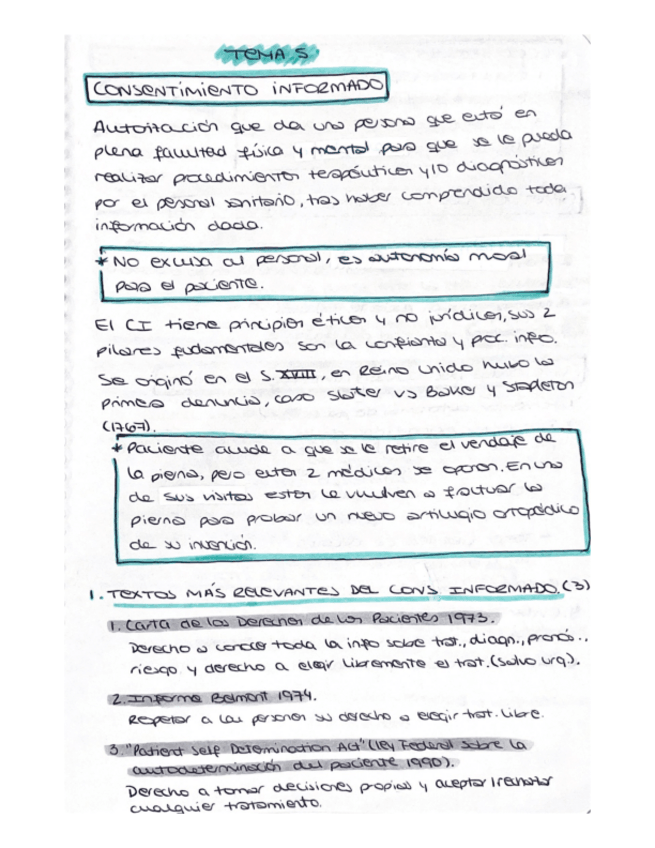 TEMA 5.
CONSENTIMIENTO INFORMADO
Autorización que da una persona que está en
plena facultad física y mental para que se le pueda
realizar procedimientos terapéuticos y/o diagnósticos
por el personal sanitario, tras haber comprendido toda
información dada.
* No excusa al personal, es autonomía moral
para el paciente.
El CI tiene principios éticos y no jurídicos, sus 2
pilares fundamentales son la confianza y proc. info.
Se originó en el S.XVIII, en Reino Unido hubo la
primera denuncia, caso Slater vs Baker y Stapleton
(1767).
* Paciente acude a que se le retire el vendaje de
la pierna, pero estos 2 médicos se oponen. En una
de sus visitas estos le vuelven a fracturar la
pierna para probar un nuevo artilugio ortopédico
de su invención.
1. TEXTOS MÁS RELEVANTES DEL CONS. INFORMADO. (3)
1. Carta de los Derechos de los Pacientes 1973.
Derecho a conocer toda la info sobre trat., diagn., pronós.,
riesgo y derecho a elegir libremente el trat. (salvo urg.).
2. Informe Belmont 1974.
Respetar a las personas su derecho a elegir trat. libre.
3. "Patient Self Determination Act" (ley Federal sobre la
autodeterminación del paciente 1990).
Derecho a tomar decisiones propias y aceptar/rechazar
cualquier tratamiento.